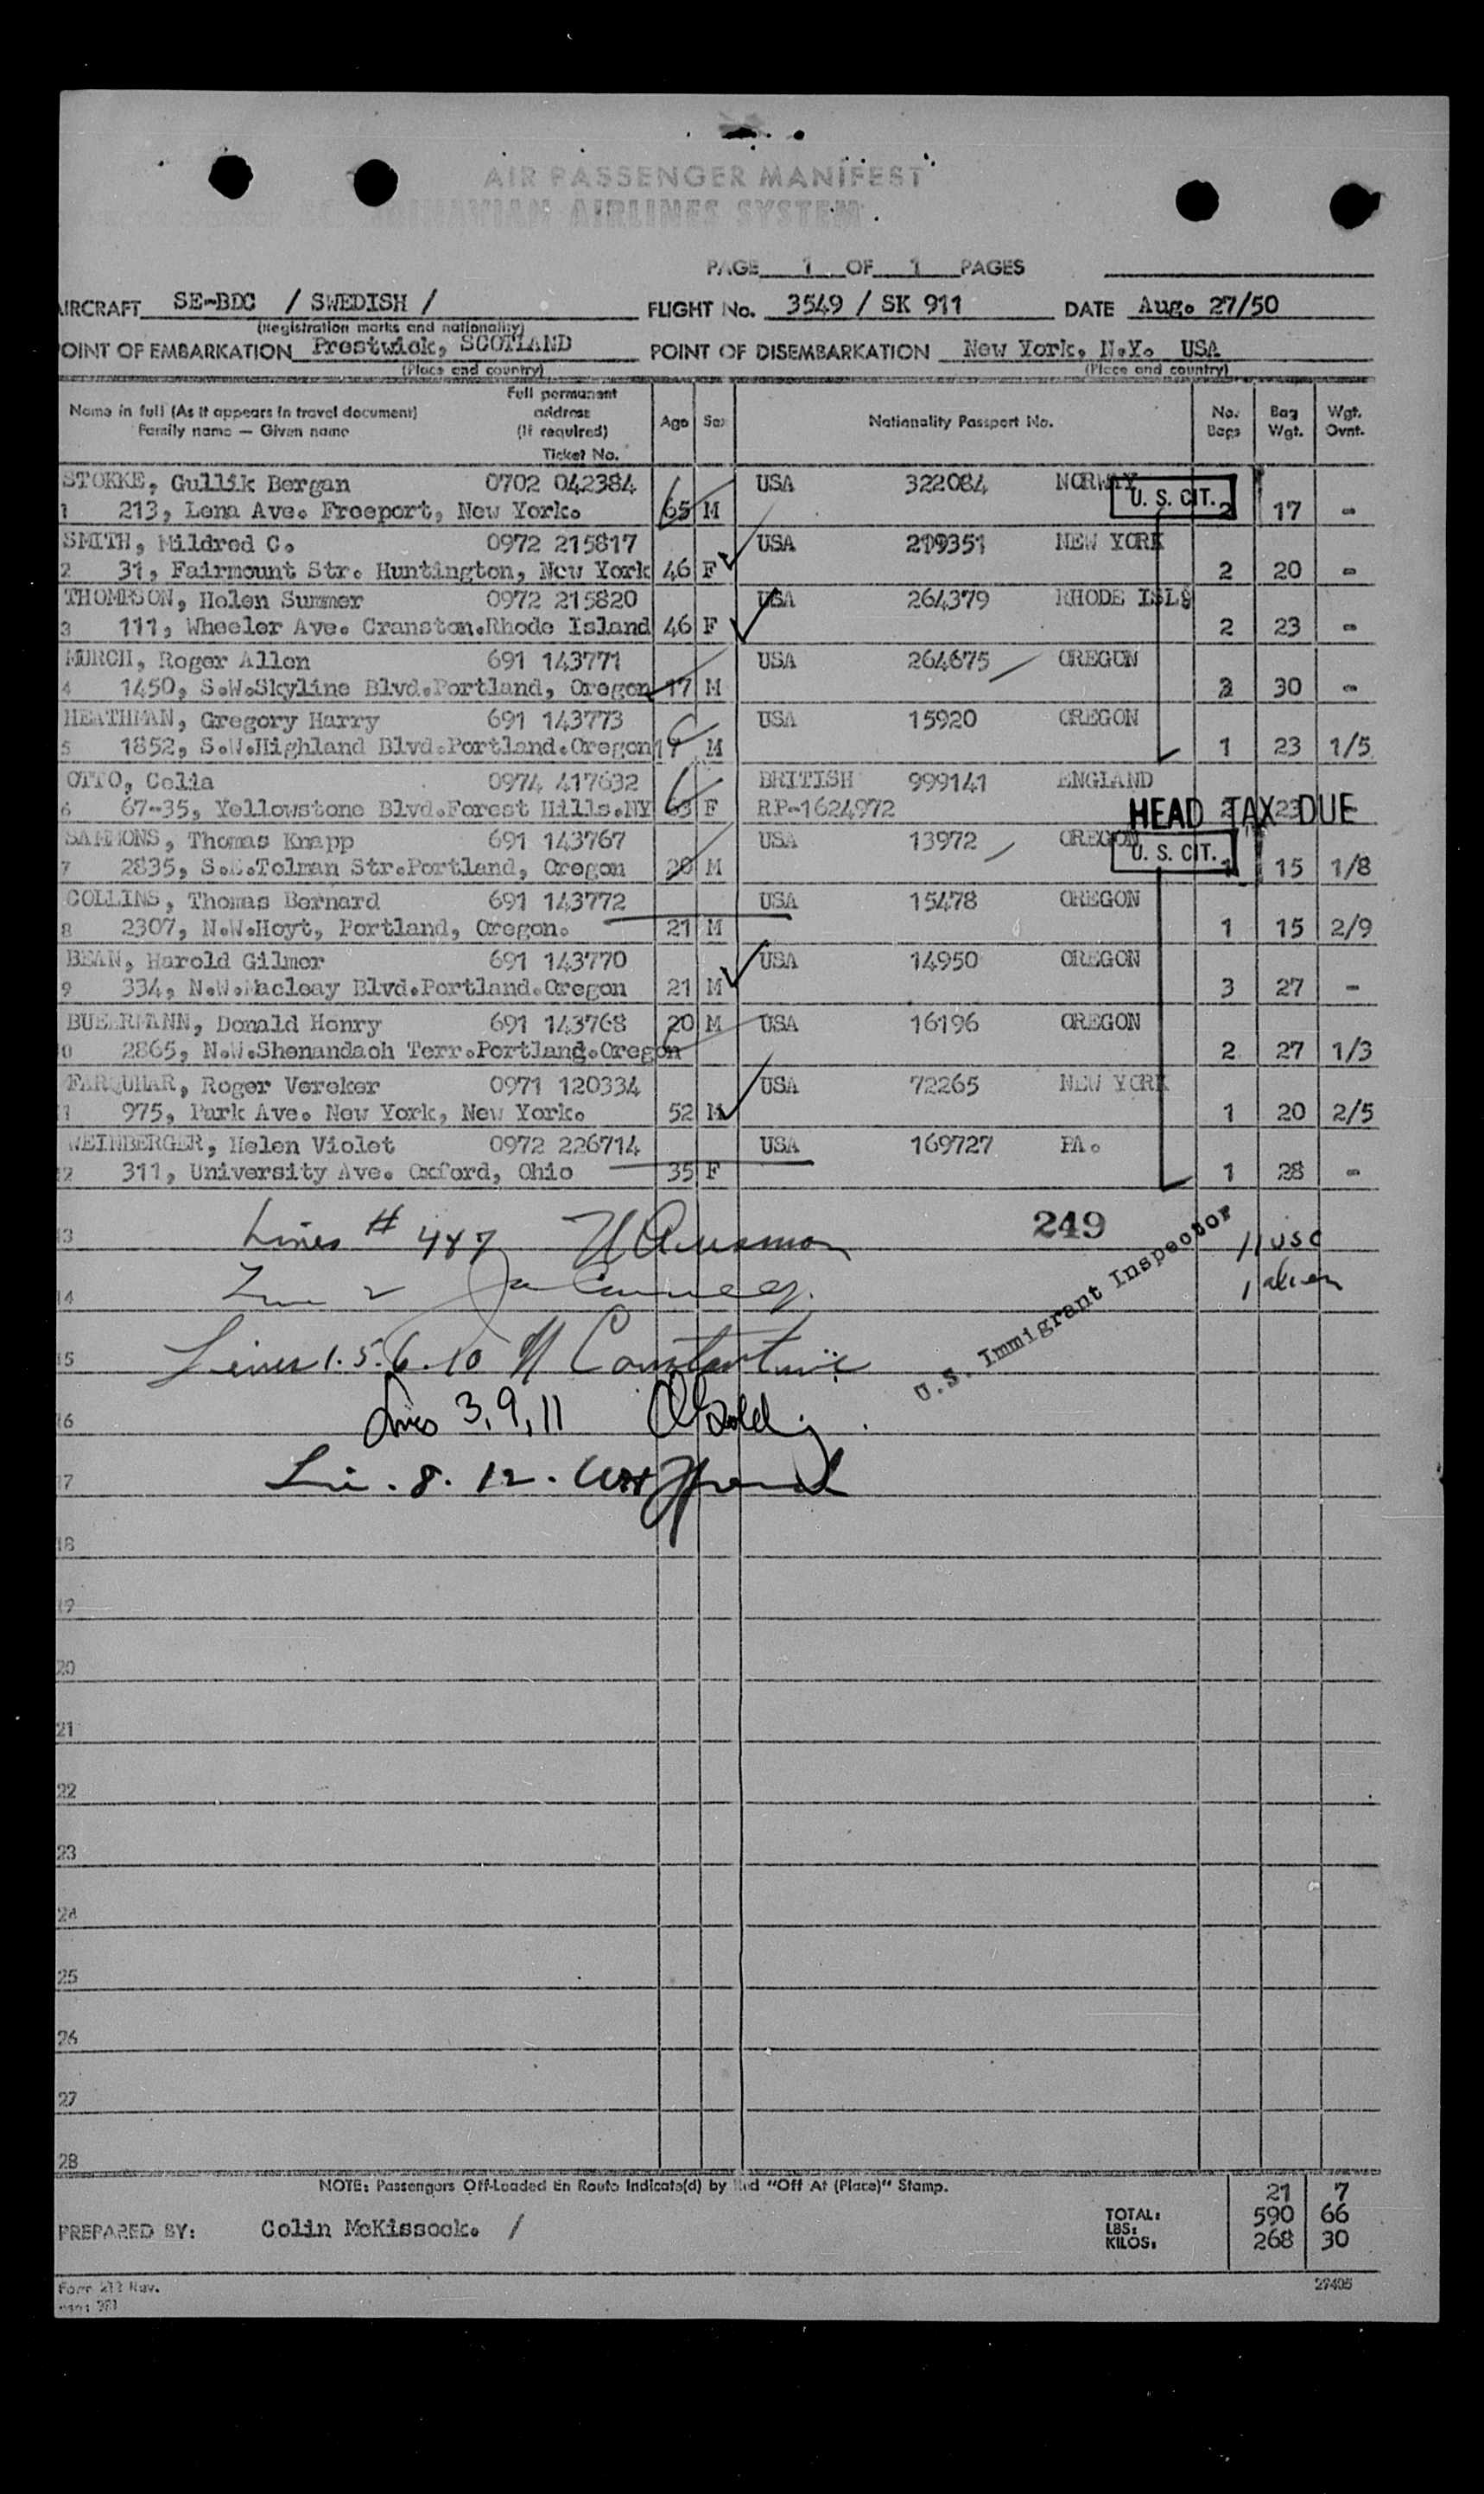 AIR PASSENGER MANIFEST
SCANDINAVIAN AIRLINES SYSTEM
PAGE 1 OF 1 PAGES
AIRCRAFT SE-BDC / SWEDISH / FLIGHT No. 3549 / SK 911 DATE Aug. 27/50
(Registration marks and nationality)
POINT OF EMBARKATION Prestwick, SCOTLAND POINT OF DISEMBARKATION New York, N.Y. USA
(Place and country) (Place and country)
Name in full (As it appears in travel document) Family name — Given name
Full permanent address (If required) Ticket No.
Age Sex Nationality Passport No. No. Bags Bag Wgt. Wgt. Ovnt.
STOKKE, Gullik Bergan 0702 042384 USA 322084 NORWAY
U. S. CIT.
1 213, Lena Ave. Freeport, New York. 65 M 2 17 -
SMITH, Mildred C. 0972 215817 USA 219351 NEW YORK
2 31, Fairmount Str. Huntington, New York 46 F 2 20 -
THOMPSON, Helen Summer 0972 215820 USA 264379 RHODE ISLS
3 111, Wheeler Ave. Cranston.Rhode Island 46 F 2 23 -
MURCH, Roger Allen 691 143771 USA 264675 OREGON
4 1450, S.W.Skyline Blvd.Portland, Oregon 17 M 2 30 -
HEATHMAN, Gregory Harry 691 143773 USA 15920 OREGON
5 1852, S.W.Highland Blvd.Portland.Oregon 17 M 1 23 1/5
OTTO, Celia 0974 417632 BRITISH 999141 ENGLAND
6 67-35, Yellowstone Blvd.Forest Hills.NY 63 F RP-1624972 2 23
HEAD TAX DUE
SAMMONS, Thomas Knapp 691 143767 USA 13972 OREGON
U. S. CIT.
7 2835, S.E.Tolman Str.Portland, Oregon 20 M 1 15 1/8
COLLINS, Thomas Bernard 691 143772 USA 15478 OREGON
8 2307, N.W.Hoyt, Portland, Oregon. 21 M 1 15 2/9
BEAN, Harold Gilmer 691 143770 USA 14950 OREGON
9 334, N.W.Macleay Blvd.Portland.Oregon 21 M 3 27 -
BUEERMANN, Donald Henry 691 143768 20 M USA 16196 OREGON
0 2865, N.W.Shenandaoh Terr.Portland.Oregon 2 27 1/3
FARQUHAR, Roger Vereker 0971 120334 USA 72265 NEW YORK
1 975, Park Ave. New York, New York. 52 M 1 20 2/5
WEINBERGER, Helen Violet 0972 226714 USA 169727 PA.
2 311, University Ave. Oxford, Ohio 35 F 1 28 -
3 Lines # 4&7 249 11 USC
14 Line 2 1 alien
U.S. Immigrant Inspector
15 Lines 1.5.6.10 Constantine
16 Lines 3,9,11
17 Li. 8. 12.
18
19
20
21
22
23
24
25
26
27
28
NOTE: Passengers Off-Loaded En Route Indicate(d) by Red "Off At (Place)" Stamp.
21 7
TOTAL: 590 66
LBS:
KILOS: 268 30
PREPARED BY: Colin McKissock. /
Form 212 Nov. 27405